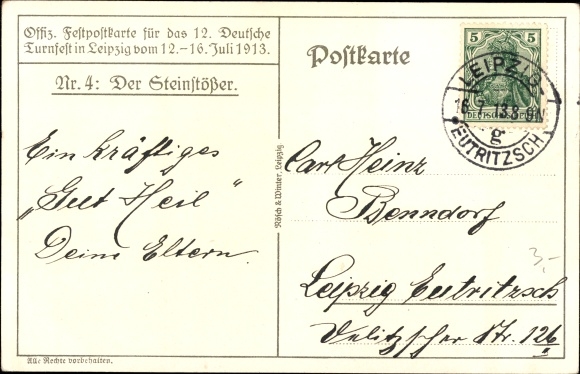 Offiz. Festpostkarte für das 12. Deutsche
Turnfest in Leipzig vom 12.-16. Juli 1913.
Nr. 4: Der Steinstößer.
Ein kräftiges
„Gut Heil"
Deine Eltern.
Alle Rechte vorbehalten.
Rösch & Winter, Leipzig
Postkarte
5 5
DEUTSCHES REICH
LEIPZIG
16 7 13 8-9N
g
* EUTRITZSCH
Carl Heinz
Benndorf
Leipzig Eutritzsch
Delitzscher Str. 126
3,-